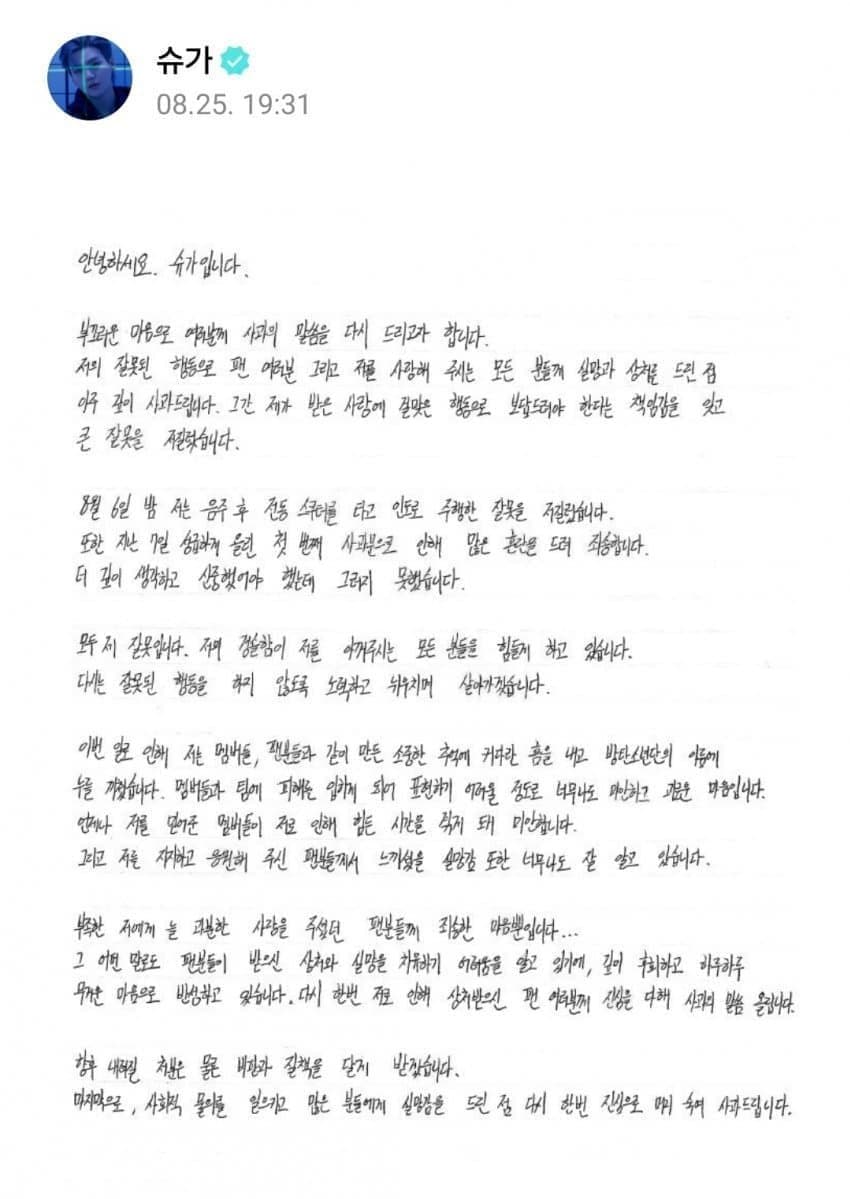 슈가
08.25. 19:31
안녕하세요. 슈가입니다.
부끄러운 마음으로 여러분께 사과의 말씀을 다시 드리고자 합니다.
저의 잘못된 행동으로 팬 여러분 그리고 저를 사랑해 주시는 모든 분들께 실망과 상처를 드린 점
아주 깊이 사과드립니다. 그간 제가 받은 사랑에 걸맞은 행동으로 보답드려야 한다는 책임감을 잊고
큰 잘못을 저질렀습니다.
8월 6일 밤 저는 음주 후 전동 스쿠터를 타고 인도로 주행한 잘못을 저질렀습니다.
또한 지난 7일 성급하게 올린 첫 번째 사과문으로 인해 많은 혼란을 드려 죄송합니다.
더 깊이 생각하고 신중했어야 했는데 그러지 못했습니다.
모두 제 잘못입니다. 저의 경솔함이 저를 아껴주시는 모든 분들을 힘들게 하고 있습니다.
다시는 잘못된 행동을 하지 않도록 노력하고 뉘우치며 살아가겠습니다.
이번 일로 인해 저는 멤버들, 팬분들과 같이 만든 소중한 추억에 커다란 흠을 내고 방탄소년단의 이름에
누를 끼쳤습니다. 멤버들과 팀에 피해를 입히게 되어 표현하기 어려울 정도로 너무나도 미안하고 괴로운 마음입니다.
언제나 저를 믿어준 멤버들이 저로 인해 힘든 시간을 겪게 돼 미안합니다.
그리고 저를 지지하고 응원해 주신 팬분들께서 느끼셨을 실망감 또한 너무나도 잘 알고 있습니다.
부족한 저에게 늘 과분한 사랑을 주셨던 팬분들께 죄송한 마음뿐입니다...
그 어떤 말로도 팬분들이 받으신 상처와 실망을 치유하기 어려움을 알고 있기에, 깊이 후회하고 하루하루
무거운 마음으로 반성하고 있습니다. 다시 한번 저로 인해 상처받으신 팬 여러분께 진심을 다해 사과의 말씀 올립니다.
향후 내려질 처분은 물론 비판과 질책을 달게 받겠습니다.
마지막으로, 사회적 물의를 일으키고 많은 분들에게 실망감을 드린 점 다시 한번 진심으로 머리 숙여 사과드립니다.